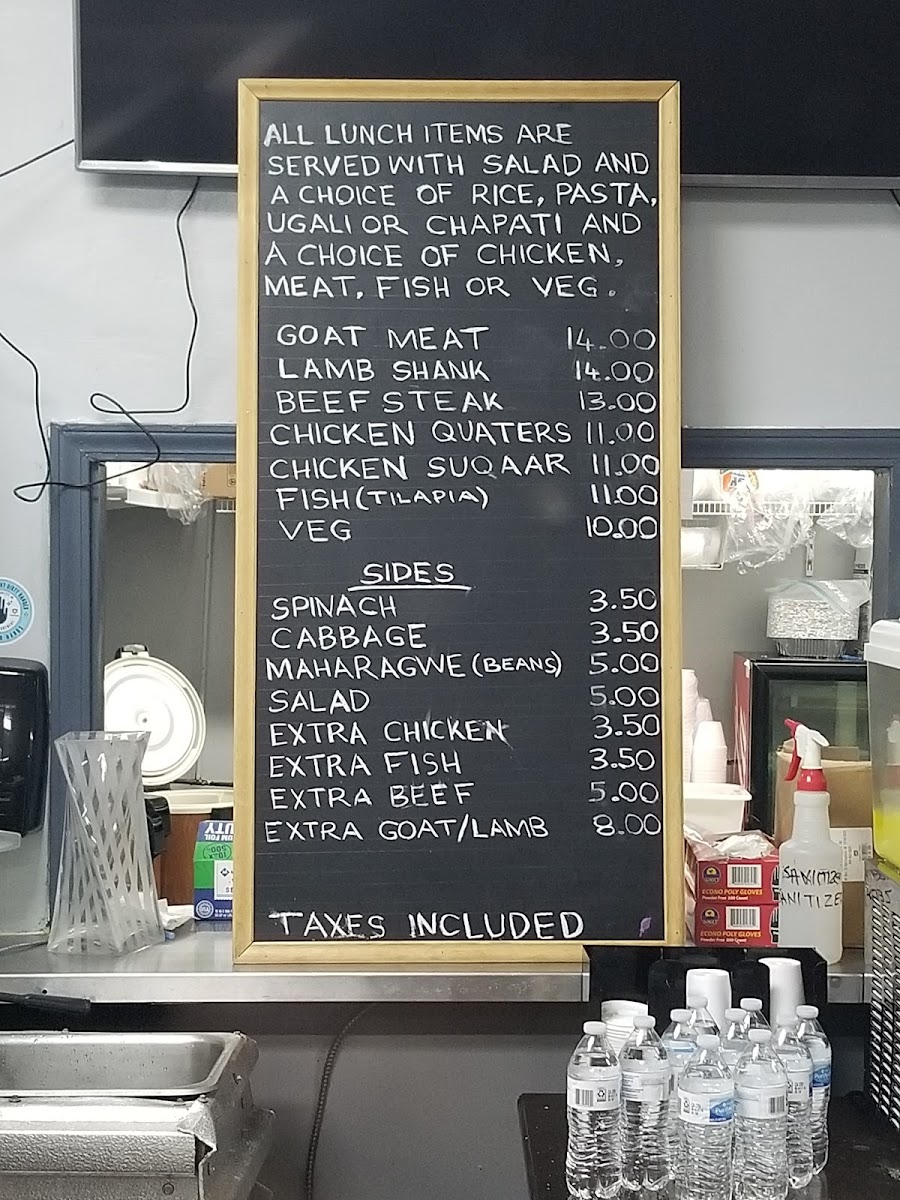 ALL LUNCH ITEMS ARE
SERVED WITH SALAD AND
A CHOICE OF RICE, PASTA,
UGALI OR CHAPATI AND
A CHOICE OF CHICKEN,
MEAT, FISH OR VEG.
GOAT MEAT 14.00
LAMB SHANK 14.00
BEEF STEAK 13.00
CHICKEN QUATERS 11.00
CHICKEN SUQAAR 11.00
FISH (TILAPIA) 11.00
VEG 10.00
SIDES
SPINACH 3.50
CABBAGE 3.50
MAHARAGWE (BEANS) 5.00
SALAD 5.00
EXTRA CHICKEN 3.50
EXTRA FISH 3.50
EXTRA BEEF 5.00
EXTRA GOAT/LAMB 8.00
TAXES INCLUDED
ECONO POLY GLOVES
Powder Free
ECONO POLY GLOVES
Powder Free